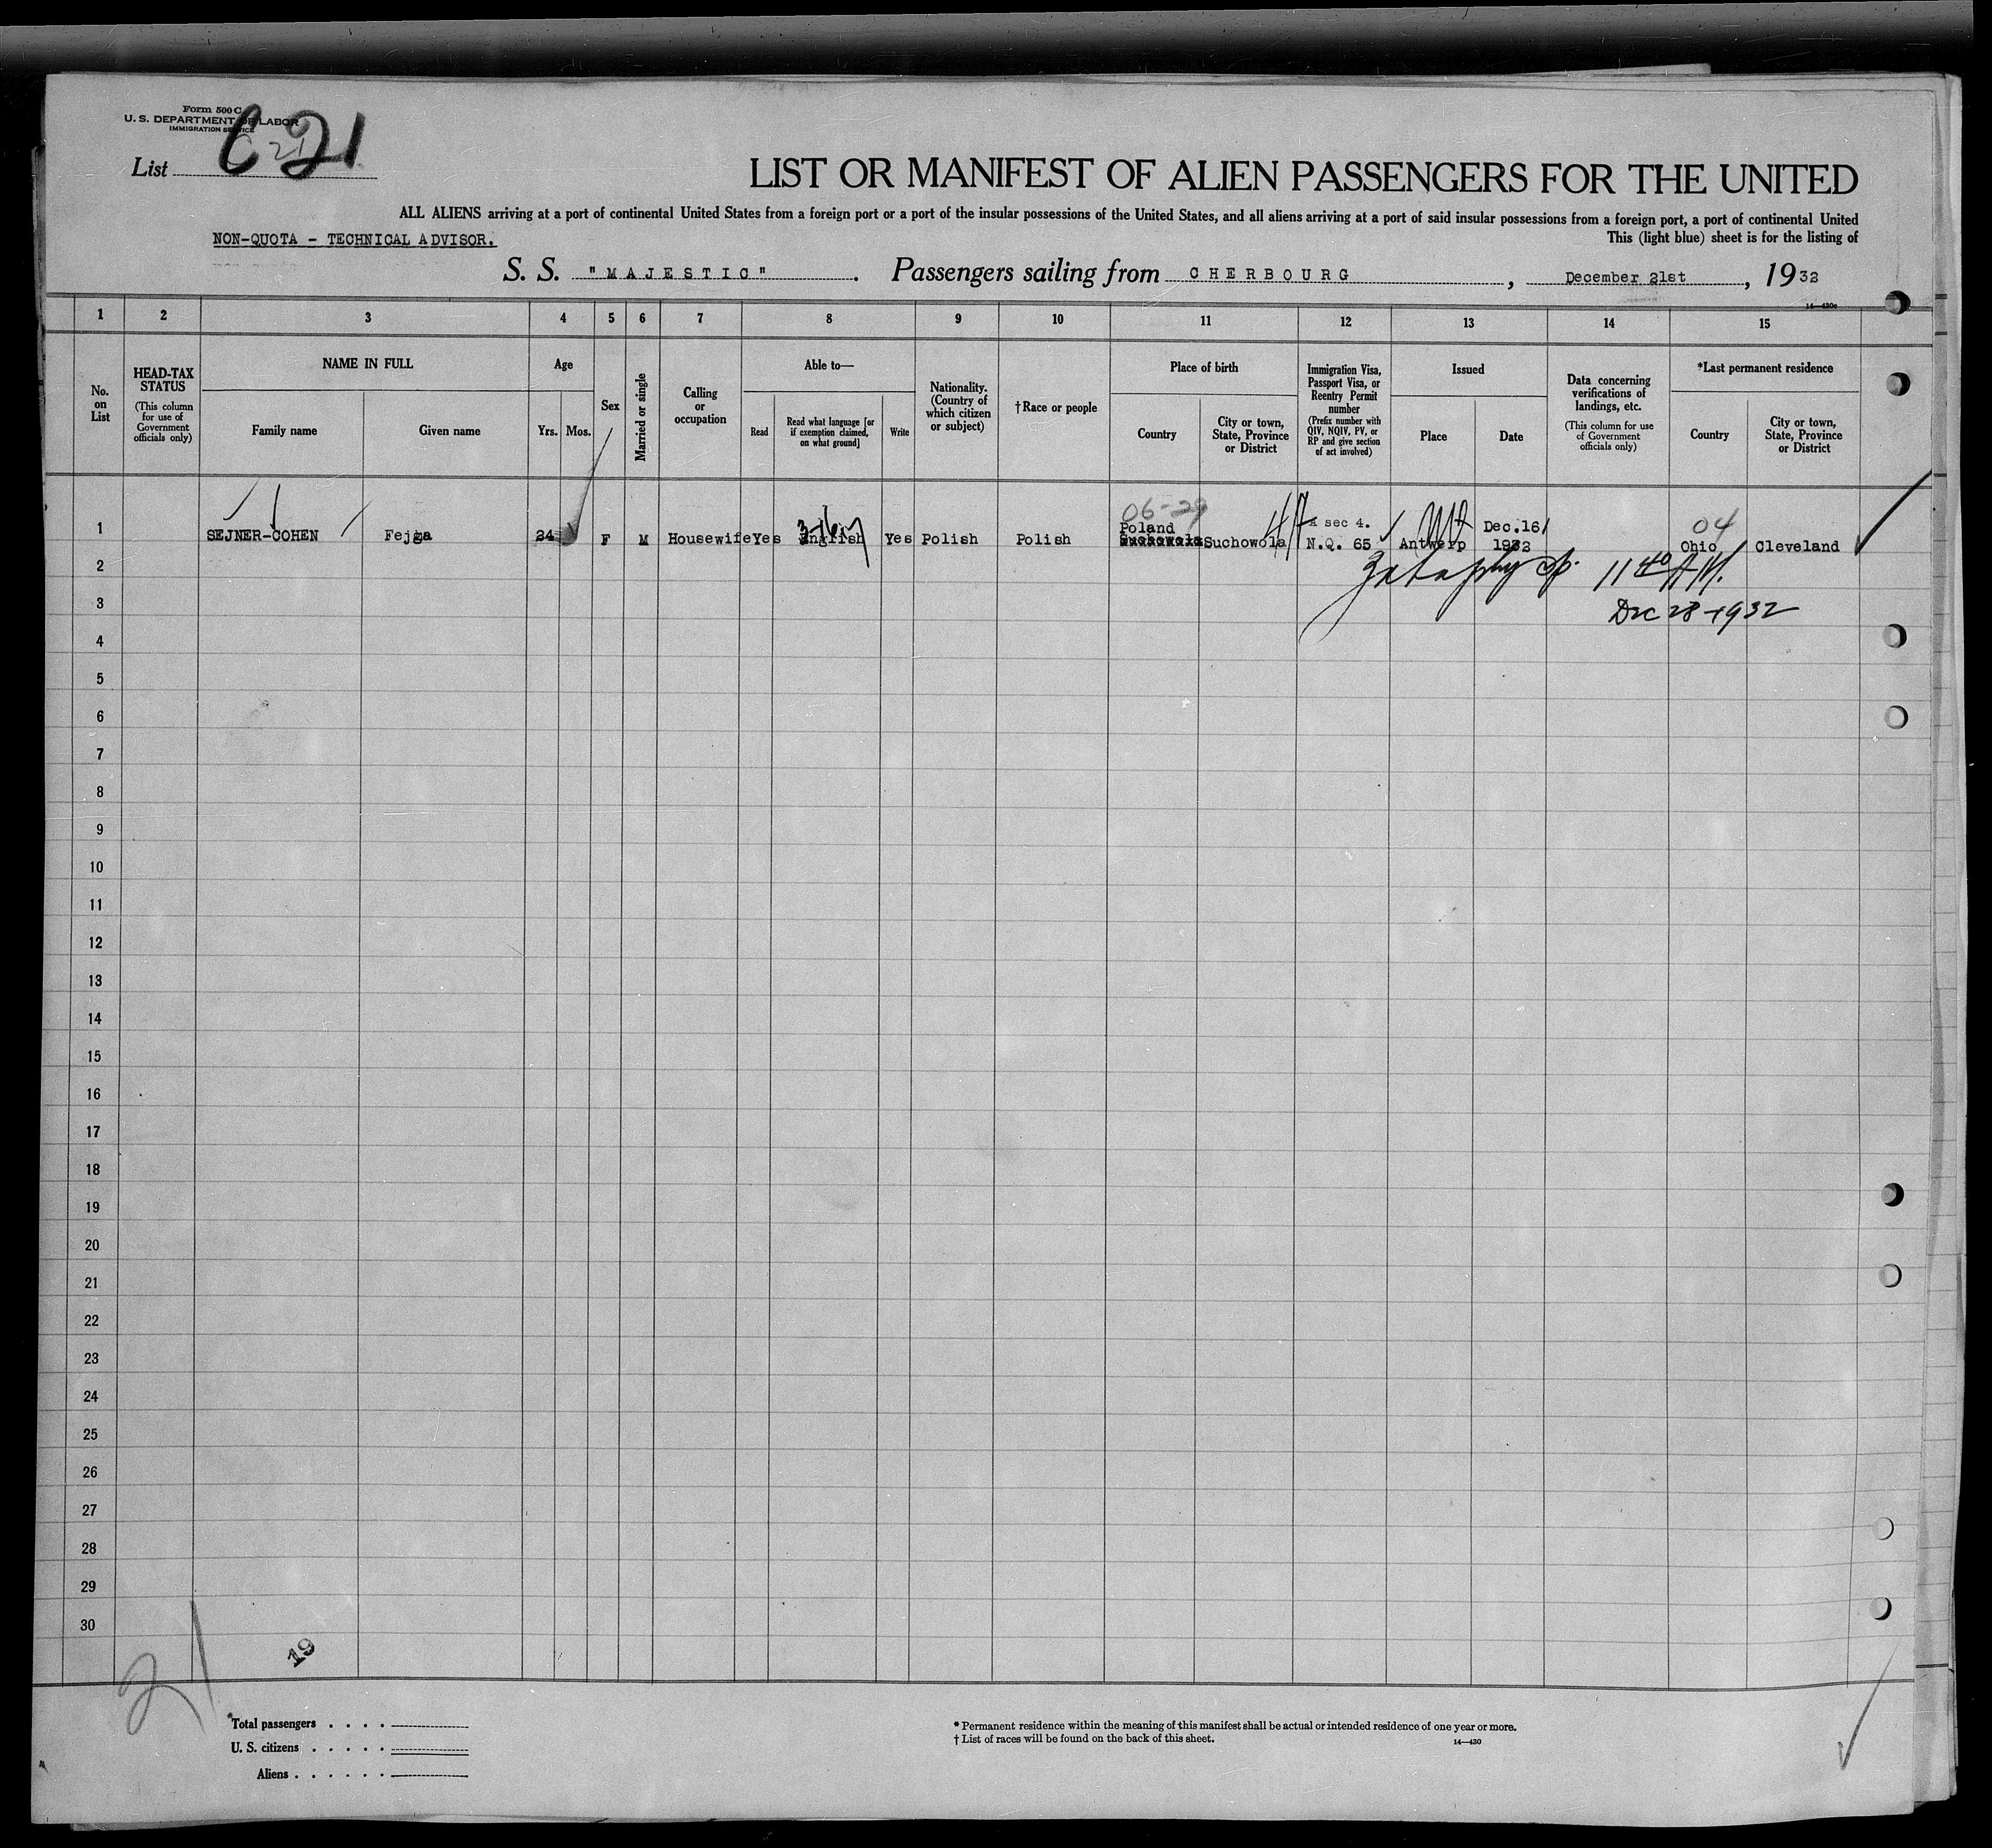 Form 500 C
U. S. DEPARTMENT OF LABOR
IMMIGRATION SERVICE
List C 21
LIST OR MANIFEST OF ALIEN PASSENGERS FOR THE UNITED
ALL ALIENS arriving at a port of continental United States from a foreign port or a port of the insular possessions of the United States, and all aliens arriving at a port of said insular possessions from a foreign port, a port of continental United
NON-QUOTA - TECHNICAL ADVISOR.
This (light blue) sheet is for the listing of
S. S. "MAJESTIC". Passengers sailing from CHERBOURG, December 21st, 1932
14—430c
1 2 3 4 5 6 7 8 9 10 11 12 13 14 15
No. on List
HEAD-TAX STATUS
(This column for use of Government officials only)
NAME IN FULL
Family name
Given name
Age
Yrs.
Mos.
Sex
Married or single
Calling or occupation
Able to—
Read
Read what language [or if exemption claimed, on what ground]
Write
Nationality. (Country of which citizen or subject)
†Race or people
Place of birth
Country
City or town, State, Province or District
Immigration Visa, Passport Visa, or Reentry Permit number
(Prefix number with QIV, NQIV, PV, or RP and give section of act involved)
Issued
Place
Date
Data concerning verifications of landings, etc.
(This column for use of Government officials only)
*Last permanent residence
Country
City or town, State, Province or District
06-29
04
Poland
A sec 4.
Dec.16
1 SEJNER-COHEN Fejga 24 F M Housewife Yes English Yes Polish Polish Suchowola N.Q. 65 Antwerp 1932 Ohio Cleveland
2
11 40 AM.
3
Dec 28-1932
4
5
6
7
8
9
10
11
12
13
14
15
16
17
18
19
20
21
22
23
24
25
26
27
28
29
30
21
19
Total passengers . . . .
U. S. citizens . . . . .
Aliens . . . . . .
* Permanent residence within the meaning of this manifest shall be actual or intended residence of one year or more.
† List of races will be found on the back of this sheet.
14—430